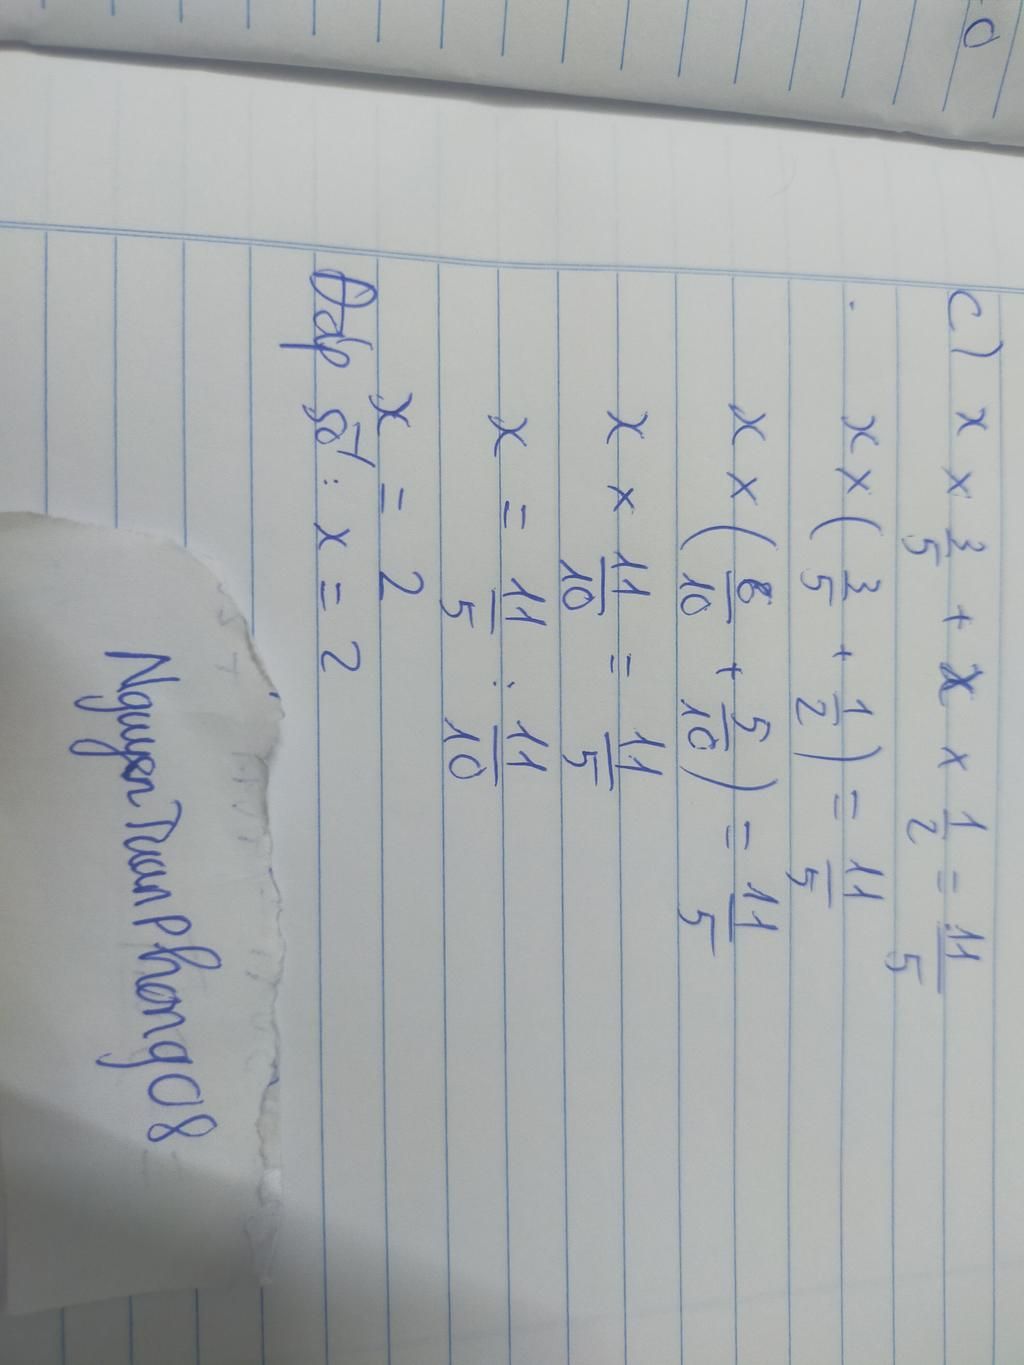 0
c) x × 3/5 + x × 1/2 = 11/5
x × (3/5 + 1/2) = 11/5
x × (6/10 + 5/10) = 11/5
x × 11/10 = 11/5
x = 11/5 : 11/10
x = 2
Đáp số: x = 2
NguyenTuanPhong08